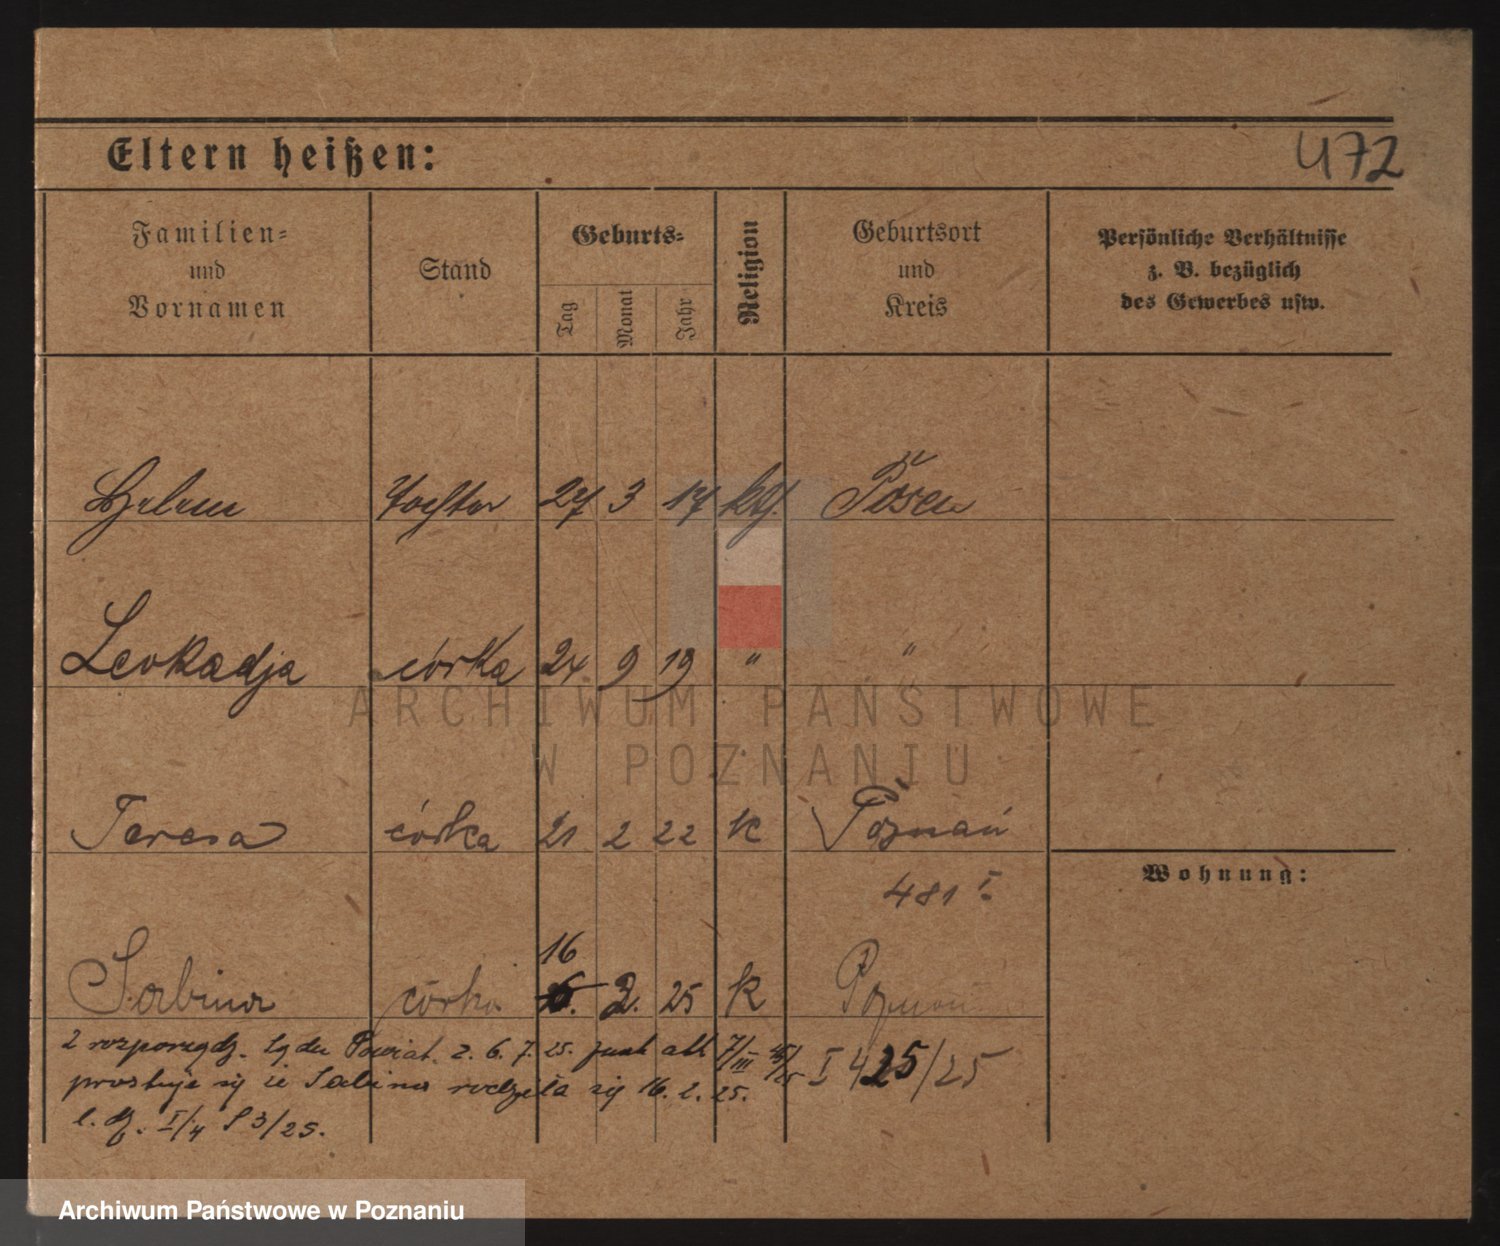 Eltern heißen:
472
Familien=
und
Vornamen
Stand
Geburts=
Tag
Monat
Jahr
Religion
Geburtsort
und
Kreis
Persönliche Verhältnisse
z. B. bezüglich
des Gewerbes usw.
Helene Tochter 27 3 17 kth. Posen
Leokadja córka 24 9 19 " "
ARCHIWUM PAŃSTWOWE
W POZNANIU
Teresa córka 21 2 22 k Poznań
Wohnung:
481 I
16
Sabina córka 2. 25 k Poznań
z rozporządz. Sądu Powiat. z. 6. 7. 25. akt 7/III I 425/25
prostuje się że Sabina rodziła się 16. 2. 25.
l. dz. I/4 83/25.
Archiwum Państwowe w Poznaniu